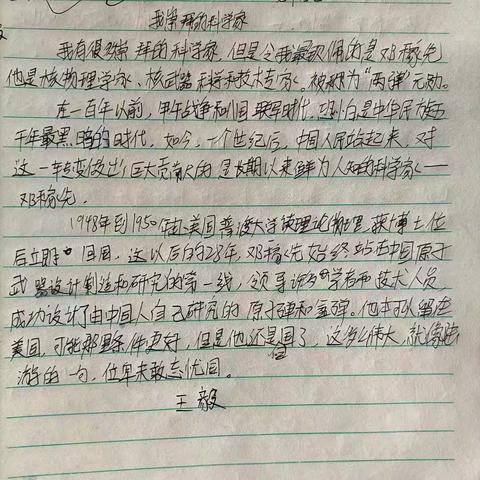 我崇拜的科学家
我有很多崇拜的科学家，但是令我最钦佩的是邓稼先
他是核物理学家、核武器科学和技术专家。被称为“两弹”元勋。
在一百年以前，甲午战争和八国联军时代，恐怕是中华民族五
千年最黑暗的时代，如今，一个世纪后，中国人民站起来，对
这一转变做出巨大贡献的是长期以来鲜为人知的科学家——
邓稼先。
1948年到1950年在美国普渡大学读理论物理，获博士位
后立即回国，这以后的28年，邓稼先始终站在中国原子
武器设计制造和研究的第一线，领导许多学者和技术人员
成功设计了由中国人自己研究的原子弹和氢弹。他本可以留在
美国，可能那里条件更好，但是他还是回国了，这多么伟大，就像陆
游的一句，位卑未敢忘忧国。
王毅